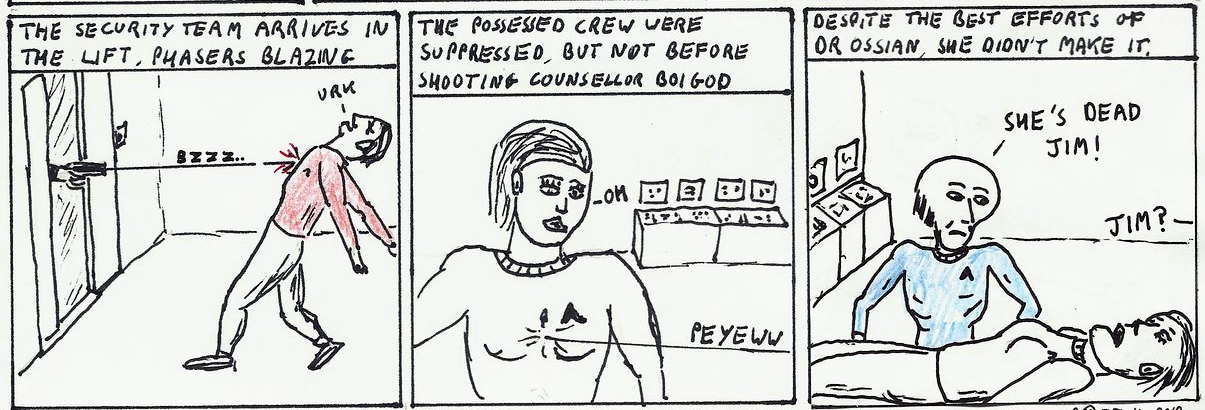 THE SECURITY TEAM ARRIVES IN
THE LIFT, PHASERS BLAZING
URK
BZZZ..
THE POSSESSED CREW WERE
SUPPRESSED, BUT NOT BEFORE
SHOOTING COUNSELLOR BOIGOD
OH
PEYEWW
DESPITE THE BEST EFFORTS OF
DR OSSIAN, SHE DIDN'T MAKE IT.
SHE'S DEAD
JIM!
JIM?